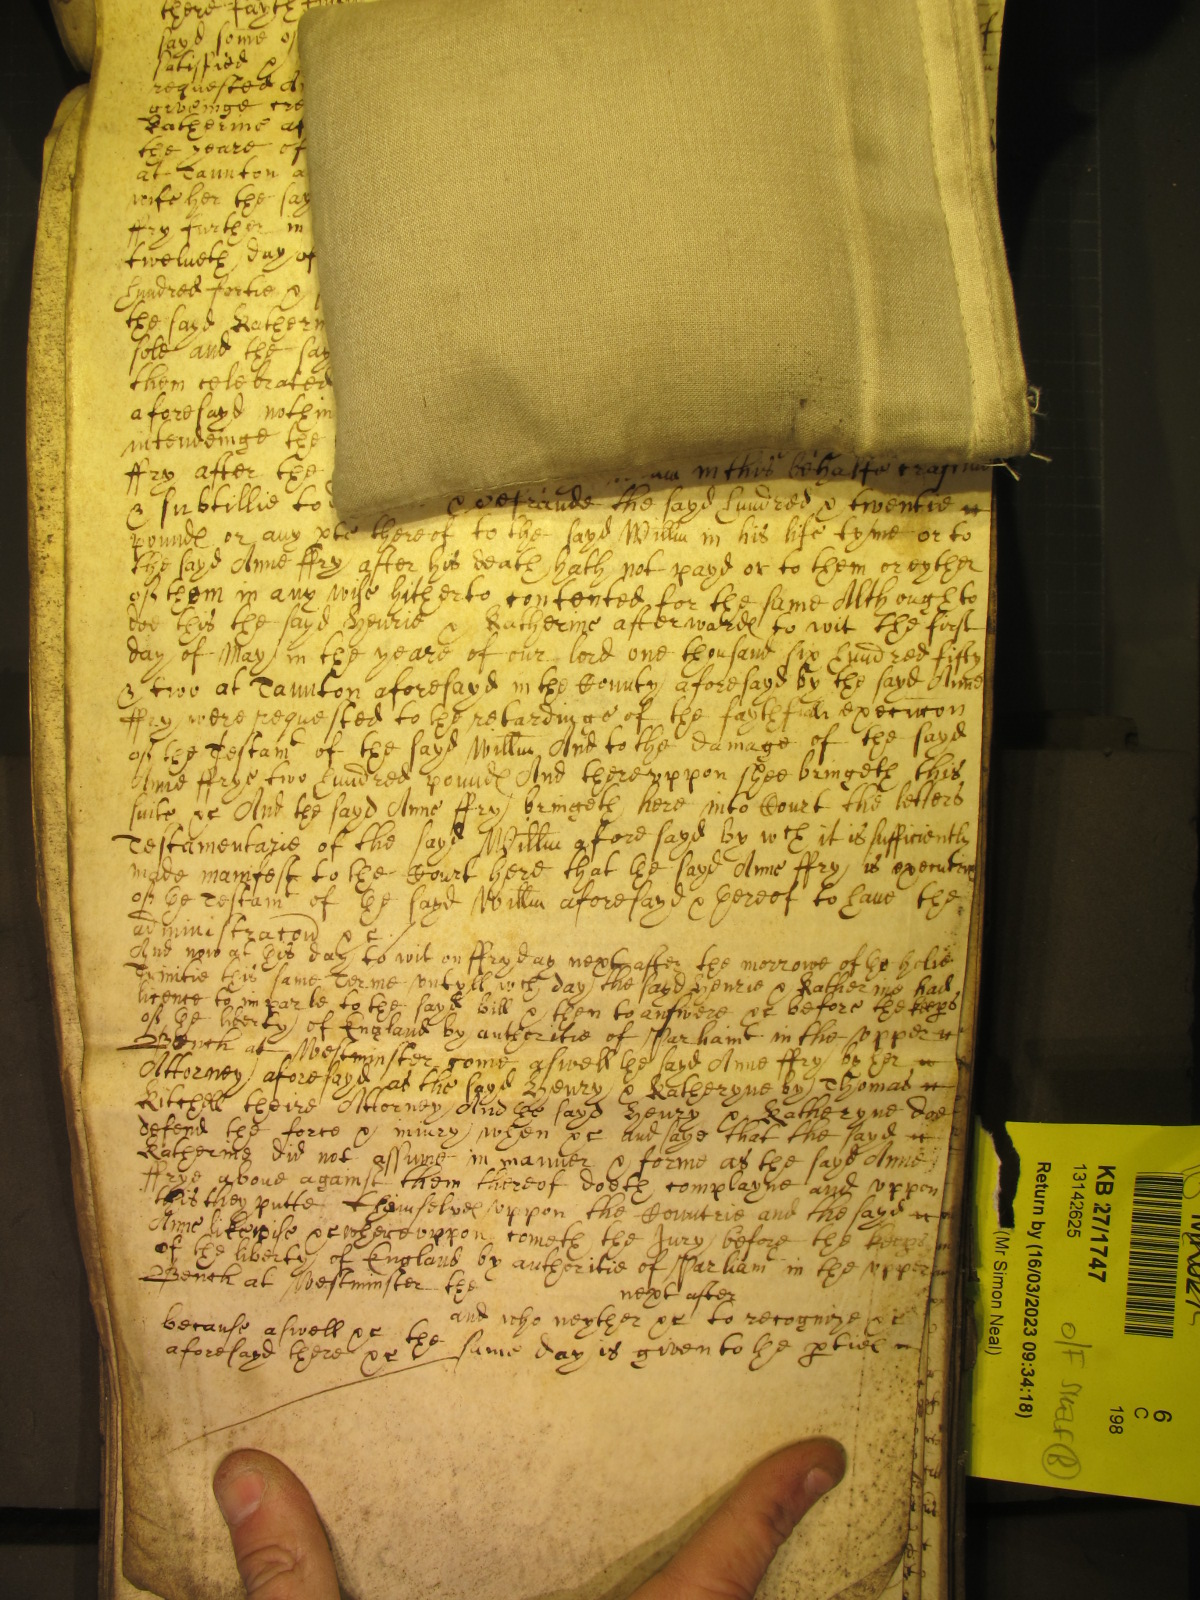 there fayth
sayd some of
satisfied &
requested
giveinge cre
Katherine af
the yeare of
at Taunton a
wife her the say
ffry further in
twelveth day of
hundred fortie &
the sayd Kathern
sole and the say
them celebrated
aforesayd nothin
intendeinge the
ffry after the in this behalfe
& subtillie to & defraude the sayd hundred & twentie
pound or any pte thereof to the sayd Willm in his life tyme or to
the sayd Anne ffry after his death hath not payd or to them or eyther
of them in any wise hitherto contented for the same Although to
doe this the sayd Henrie & Katherine afterward to wit the first
day of May in the yeare of our lord one thousand six hundred fifty
& two at Taunton aforesayd in the County aforesayd by the sayd Anne
ffry were requested to the retardinge of the faythfull execucon
of the Testamt of the sayd Willm And to the damage of the sayd
Anne ffrye two hundred pound And thereuppon shee bringeth this
suite &c And the sayd Anne ffry bringeth here into Court the letters
Testamentarie of the sayd Willm aforesayd by wch it is sufficiently
made manifest to the Court here that the sayd Anne ffry is executrix
of the Testamt of the sayd Willm aforesayd & thereof to have the
administracon &c
And now at this day to wit on ffryday next after the morrowe of the holie
Trinitie this same Terme untyll wch day the sayd Henrie & Katherine had
licence to imparle to the sayd bill & then to answere &c before the keeps
of the liberty of England by authoritie of Parliamt in the upper
Bench at Westminster come aswell the sayd Anne ffry by her
Attorney aforesayd as the sayd Henry & Katheryne by Thomas
Kitchell theire Attorney And the sayd Henry & Katheryne doe
defend the force & iniury when &c and saye that the sayd
Katherine did not assume in manner & forme as the sayd Anne
ffrye above against them thereof doeth complayne and uppon
this they putte themselves uppon the Countrie and the sayd
Anne likewise &c whereuppon cometh the Jury before the keeps
of the liberty of England by authoritie of Parliam in the upper
Bench at Westminster the next after
and who neyther &c to recognize &c
because aswell &c the same day is given to the pties
aforesayd there &c
KB 27/1747
13142625
Return by (16/03/2023 09:34:18)
(Mr Simon Neal)
6
C
198
O/F